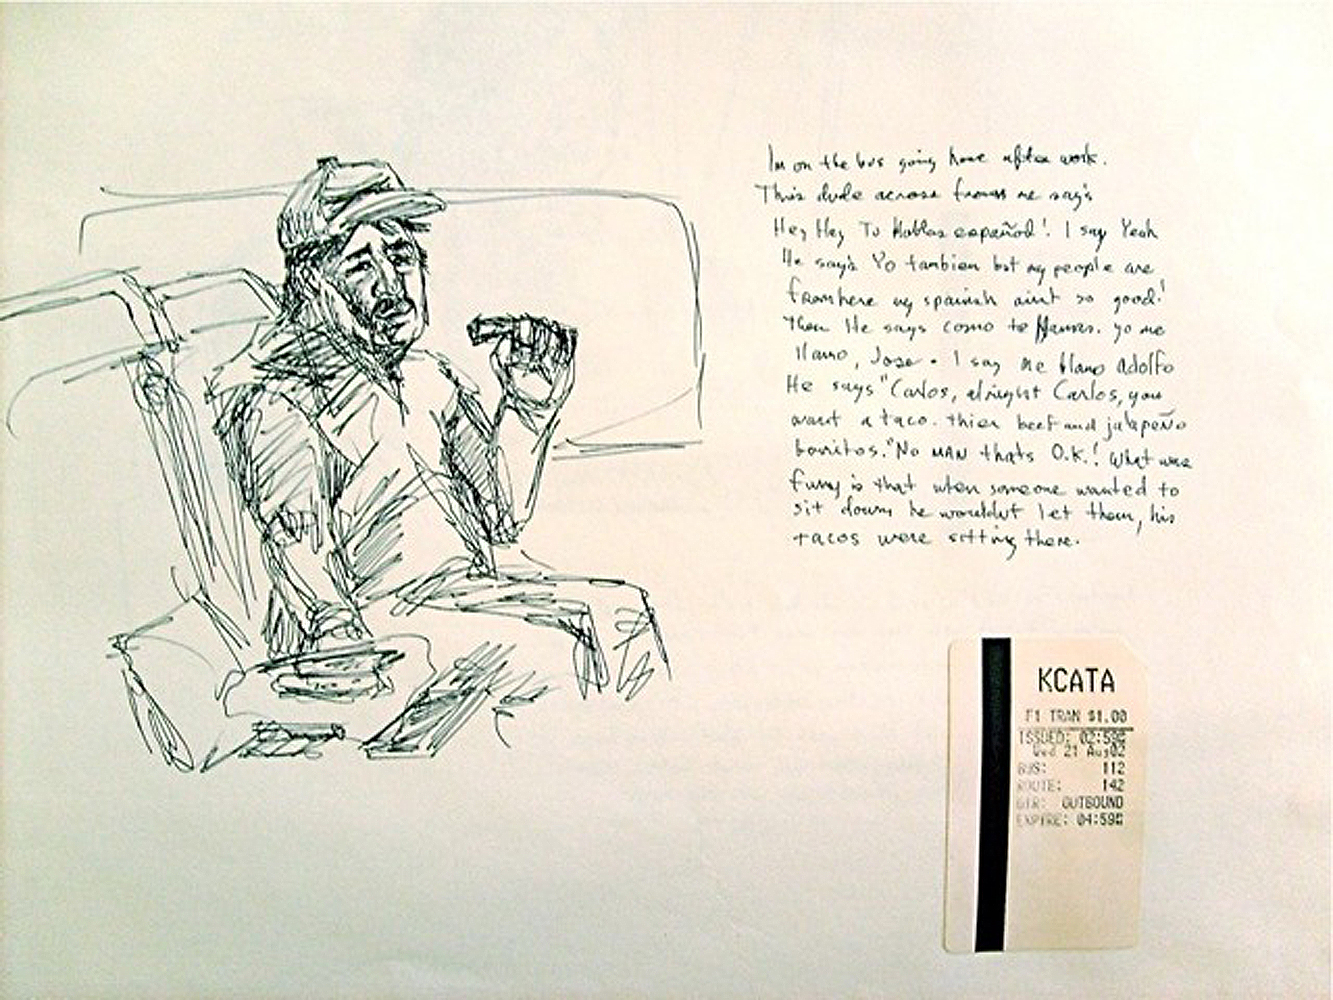 Im on the bus going home after work.
This dude across from me say's
Hey Hey Tu Hablas español! I say Yeah
He say's Yo tambien but my people are
from here my spanish aint so good!
Then He says como te llamas. yo me
llamo, Jose. I say me llamo Adolfo
He says "Carlos, alright Carlos, you
want a taco. thier beef and jalapeño
burritos." No MAN thats O.K.! What was
funny is that when someone wanted to
sit down he wouldnt let them, his
tacos were sitting there.
KCATA
F1 TRAN $1.00
ISSUED: 02:59
Wed 21 Aug02
BUS: 112
ROUTE: 142
DIR: OUTBOUND
EXPIRE: 04:59